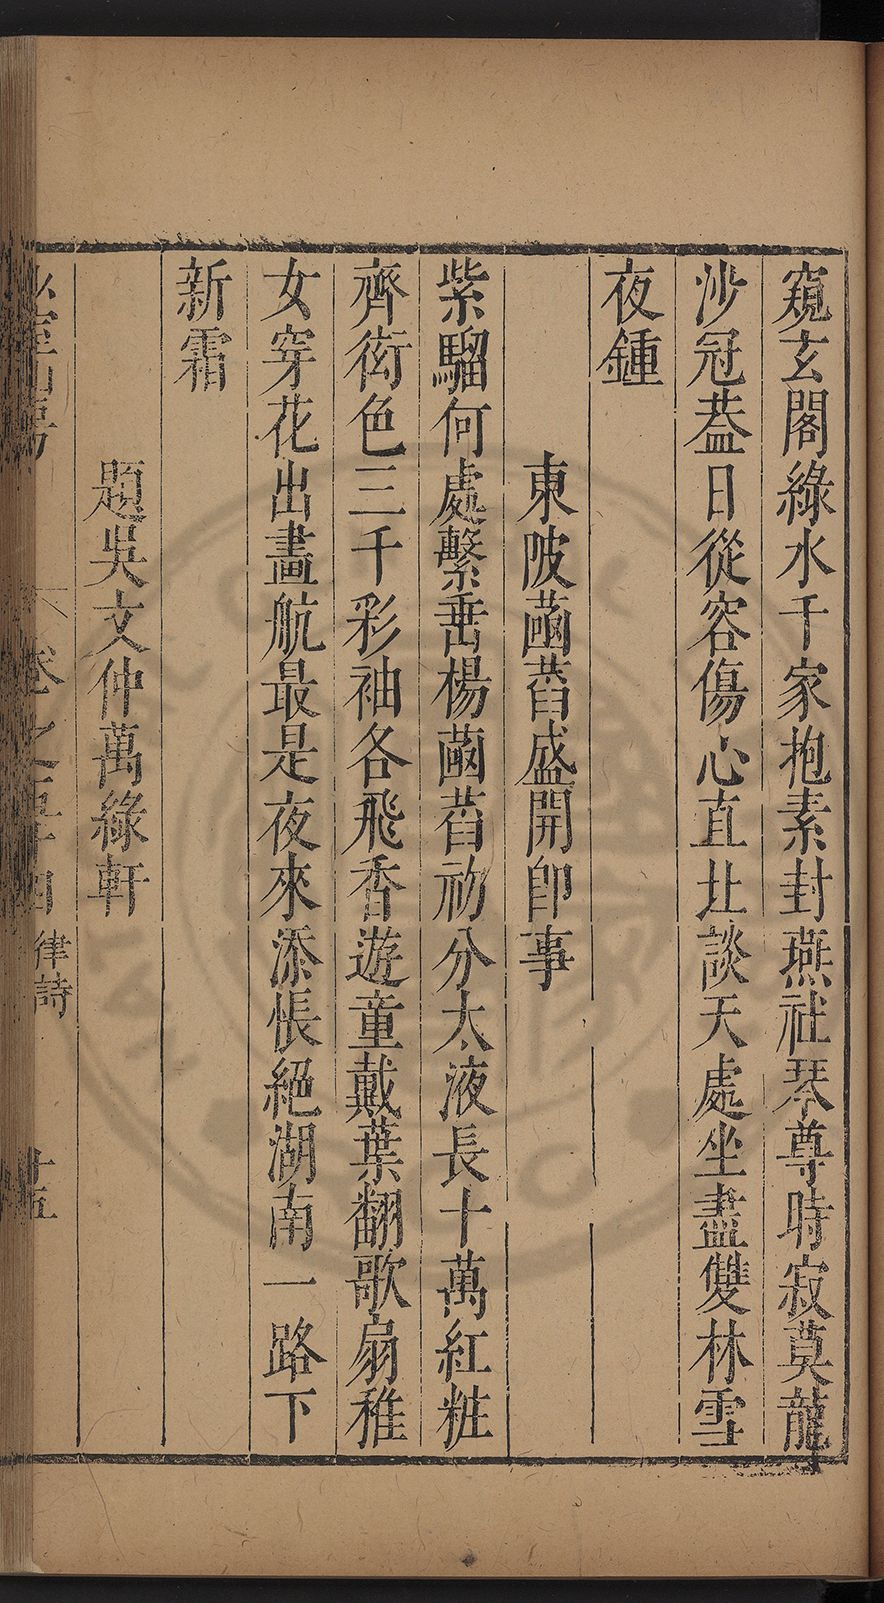 窺玄閣綠水千家抱素封燕社琴尊時寂莫龍
沙冠葢日從容傷心直北談天處坐盡雙林雪
夜鍾
東陂菡萏盛開即事
紫騮何處繫垂楊菡萏初分太液長十萬紅粧
齊衒色三千彩袖各飛香遊童戴葉翻歌扇稚
女穿花出畫航最是夜來添悵絕湖南一路下
新霜
題吳文仲萬綠軒
卷之五十四 律詩 廿五